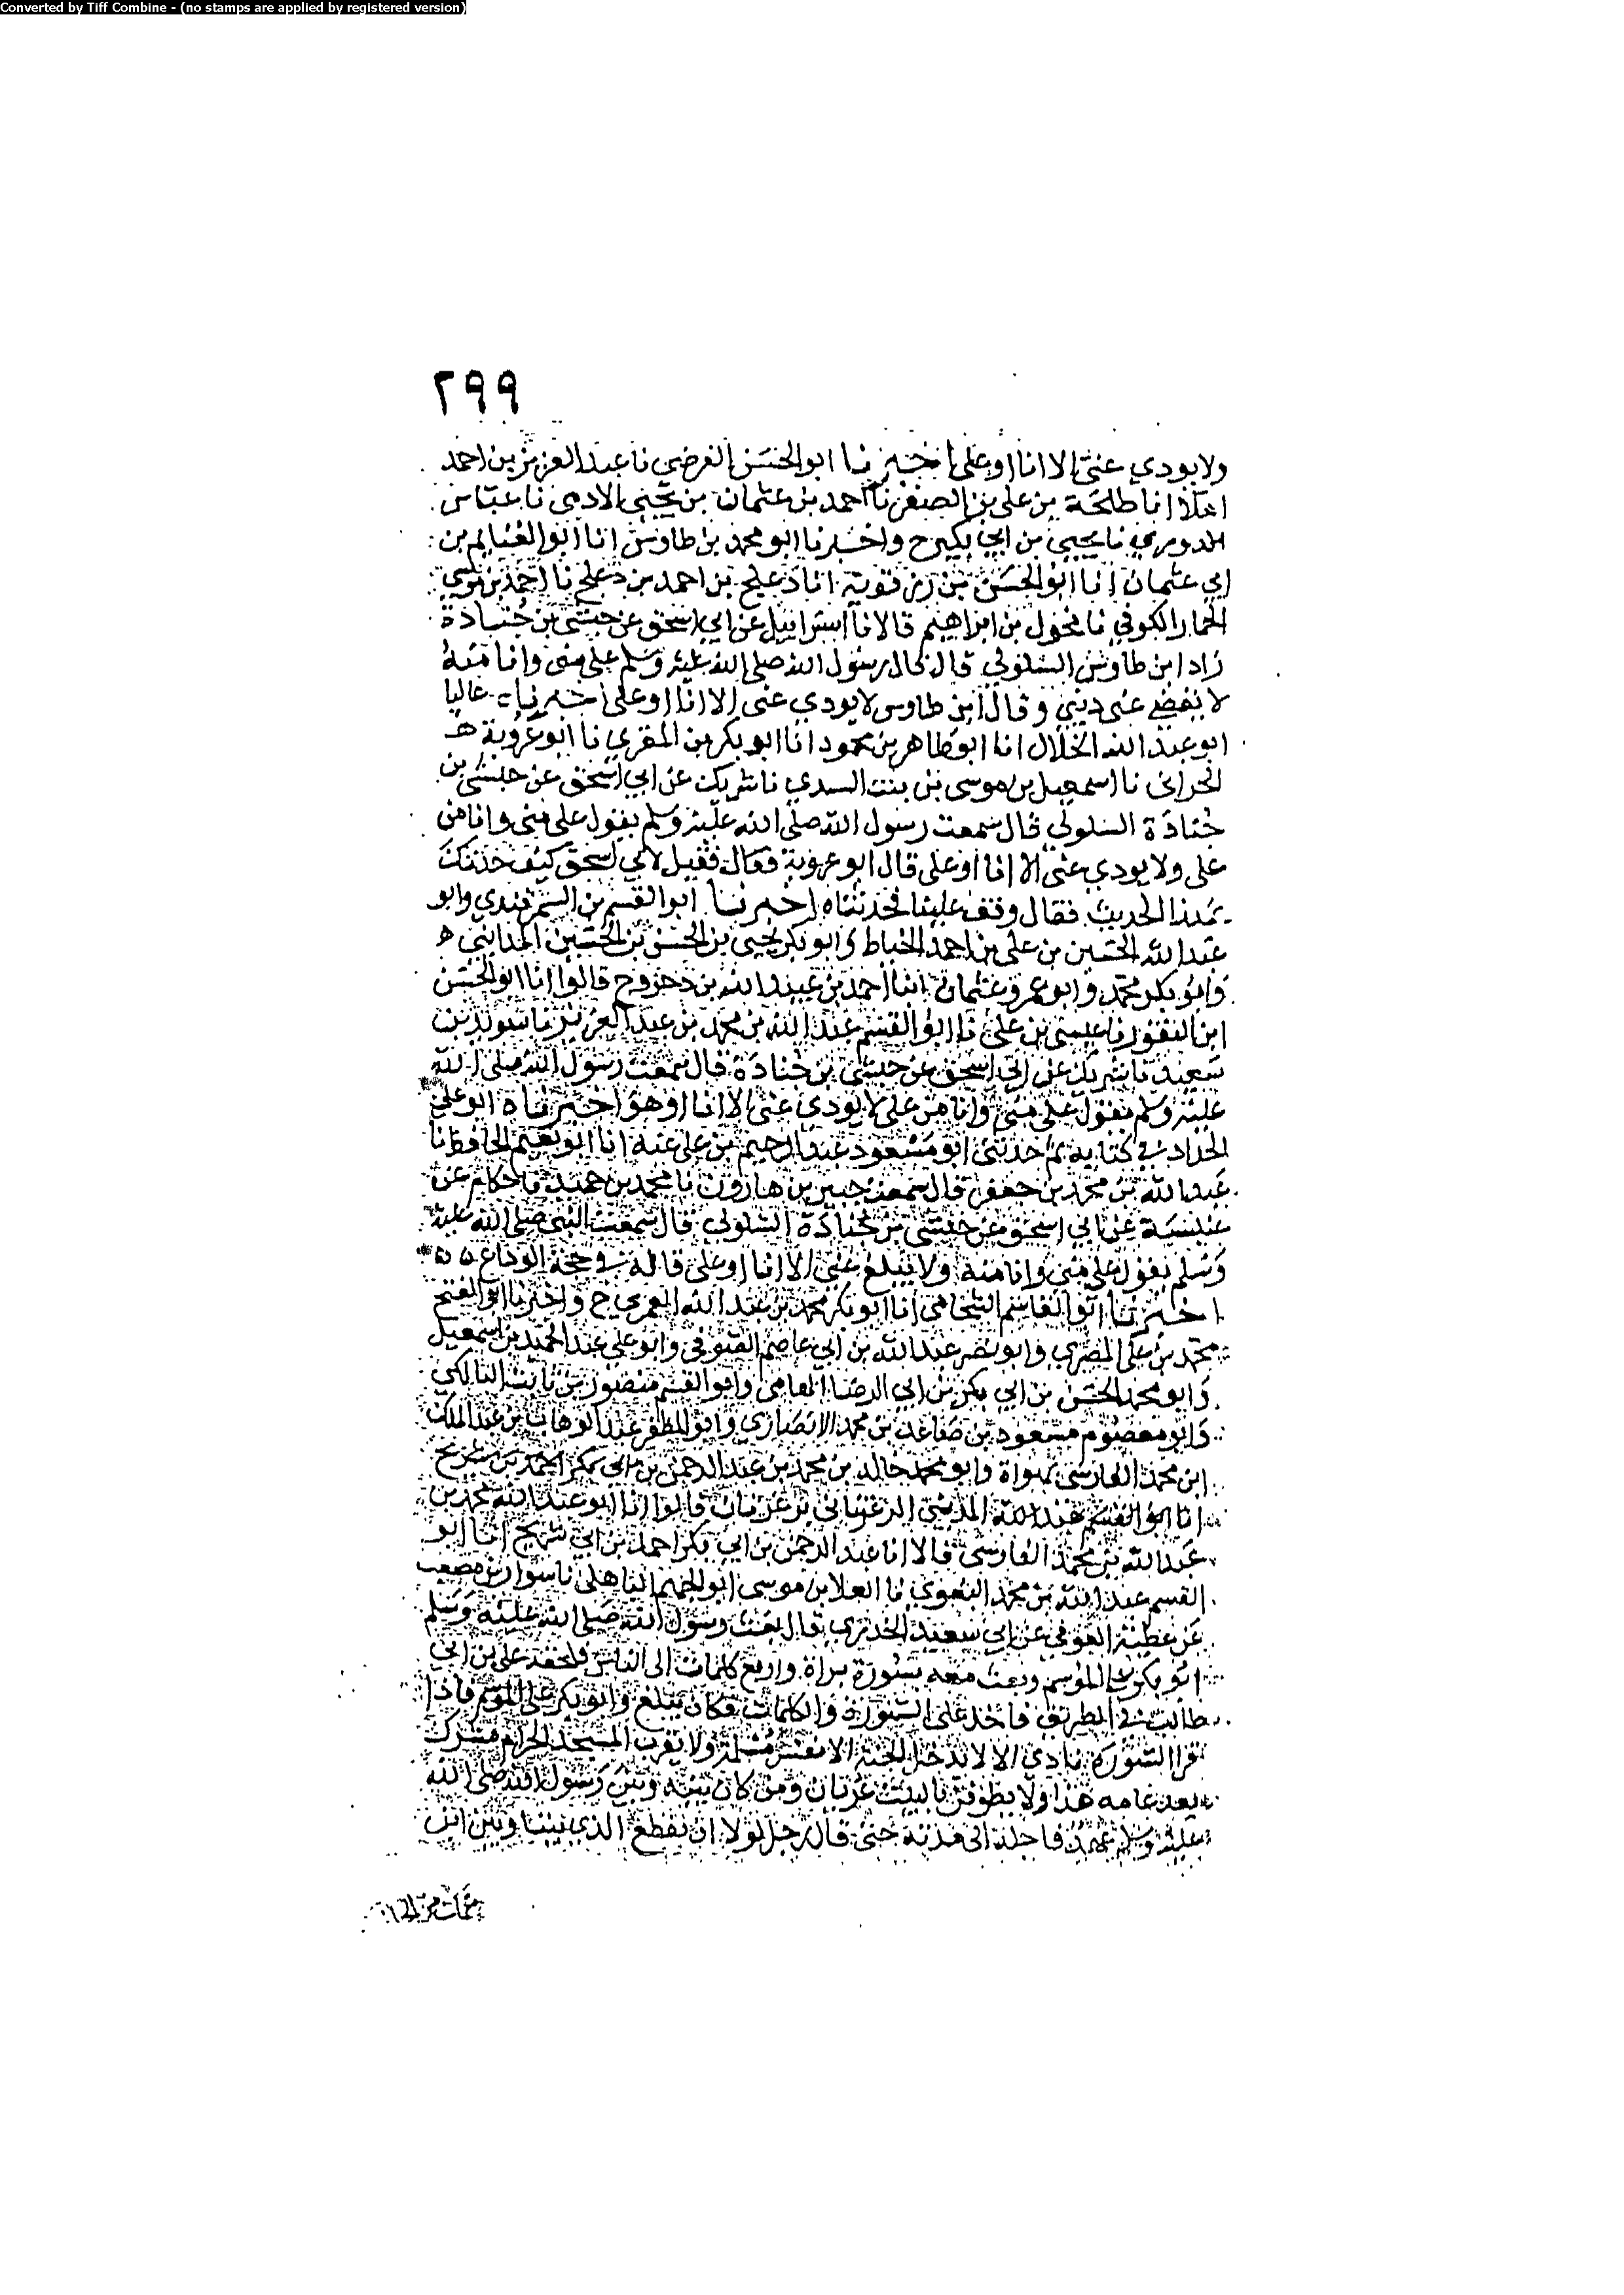 Converted by Tiff Combine - (no stamps are applied by registered version)
٢٩٩
ولا يودي عني الا انا او علي اخبرنا ابو الحسن الفرضي نا عبد العزيز بن احمد
املاء انا طلحة بن علي بن الصقر نا احمد بن عثمان بن يحيى الادمي نا عباس
الدوري نا يحيى بن ابي بكير ح واخبرنا ابو محمد بن طاوس انا ابو الغنايم بن
ابي عثمان انا ابو الحسن بن رزقويه انا دعلج بن احمد بن دعلج نا احمد بن موسى
الحمار الكوفي نا مخول بن ابراهيم قالا نا اسرائيل عن ابي اسحق عن حبشي بن جنادة
زاد ابن طاوس السلولي قال قال رسول الله صلى الله عليه وسلم علي مني وانا منه
لا يقضي عني ديني وقال ابن طاوس لا يودي عني الا انا او علي اخبرناه عاليا
ابو عبد الله الخلال انا ابو طاهر بن محمود انا ابو بكر بن المقري نا ابو عروبة
الحراني نا اسمعيل بن موسى بن بنت السدي نا شريك عن ابي اسحق عن حبشي بن
جنادة السلولي قال سمعت رسول الله صلى الله عليه وسلم يقول علي مني وانا من
علي ولا يودي عني الا انا او علي قال ابو عروبة فقال فقيل لابي اسحق كيف حدثك
بهذا الحديث فقال وقف علينا فحدثناه اخبرنا ابو القسم بن السمرقندي وابو
عبد الله الحسين بن علي بن احمد الخياط وابو بكر يحيى بن الحسن بن الحسين المدايني
وابو بكر محمد وابو عمرو عثمان ابنا احمد بن عبيد الله بن دحروج قالوا انا ابو الحسن
ابن النقور نا عيسى بن علي نا ابو القسم عبد الله بن محمد بن عبد العزيز نا سويد بن
سعيد نا شريك عن ابي اسحق عن حبشي بن جنادة قال سمعت رسول الله صلى الله
عليه وسلم يقول علي مني وانا من علي لا يودي عني الا انا او هو اخبرناه ابو علي
الحداد في كتابه ثم حدثني ابو مسعود عبد الرحيم بن علي عنه انا ابو نعيم الحافظ نا
عبد الله بن محمد بن جعفر قال سمعت جبير بن هارون نا محمد بن حميد نا حكام عن
عنبسة عن ابي اسحق عن حبشي بن جنادة السلولي قال سمعت النبي صلى الله عليه
وسلم يقول علي مني وانا منه ولا يبلغ عني الا انا او علي قاله في حجة الوداع
اخبرنا ابو القاسم الشحامي انا ابو بكر محمد بن عبد الله العمري ح واخبرنا ابو الفتح
محمد بن علي المصري وابو نصر عبد الله بن ابي عاصم الصوفي وابو علي عبد الحميد بن اسمعيل
وابو محمد الحسن بن ابي بكر بن ابي الرضا وابو القسم منصور بن ثابت البالكي
وابو معصوم مسعود بن صاعد بن محمد الانصاري وابو المظفر عبد الوهاب بن عبد الملك
ابن محمد الفارسي بهراة وابو محمد خالد بن محمد بن عبد الرحمن بن
انا ابو القسم عبد الله قالوا انا ابو عبد الله محمد بن
عبد الله بن محمد الفارسي قالا انا عبد الرحمن بن ابي بكر احمد بن ابي شريح انا ابو
القسم عبد الله بن محمد البغوي نا العلا بن موسى ابو الجهم الباهلي نا سوار بن مصعب
عن عطية العوفي عن ابي سعيد الخدري قال بعث رسول الله صلى الله عليه وسلم
ابو بكر على الموسم وبعث معه بسورة براة واربع كلمات الى الناس فلحقه علي بن ابي
طالب في الطريق فاخذ علي السورة والكلمات فكان يبلغ وابو بكر على الموسم فاذا
قرا السورة نادى الا لا يدخل الجنة الا نفس مسلمة ولا يقرب المسجد الحرام مشرك
بعد عامه هذا ولا يطوفن بالبيت عريان ومن كان بينه وبين رسول الله صلى الله
عليه وسلم عهد فاجله الى مدته حتى قال رجل لولا ان نقطع الذي بيننا وبين ابن